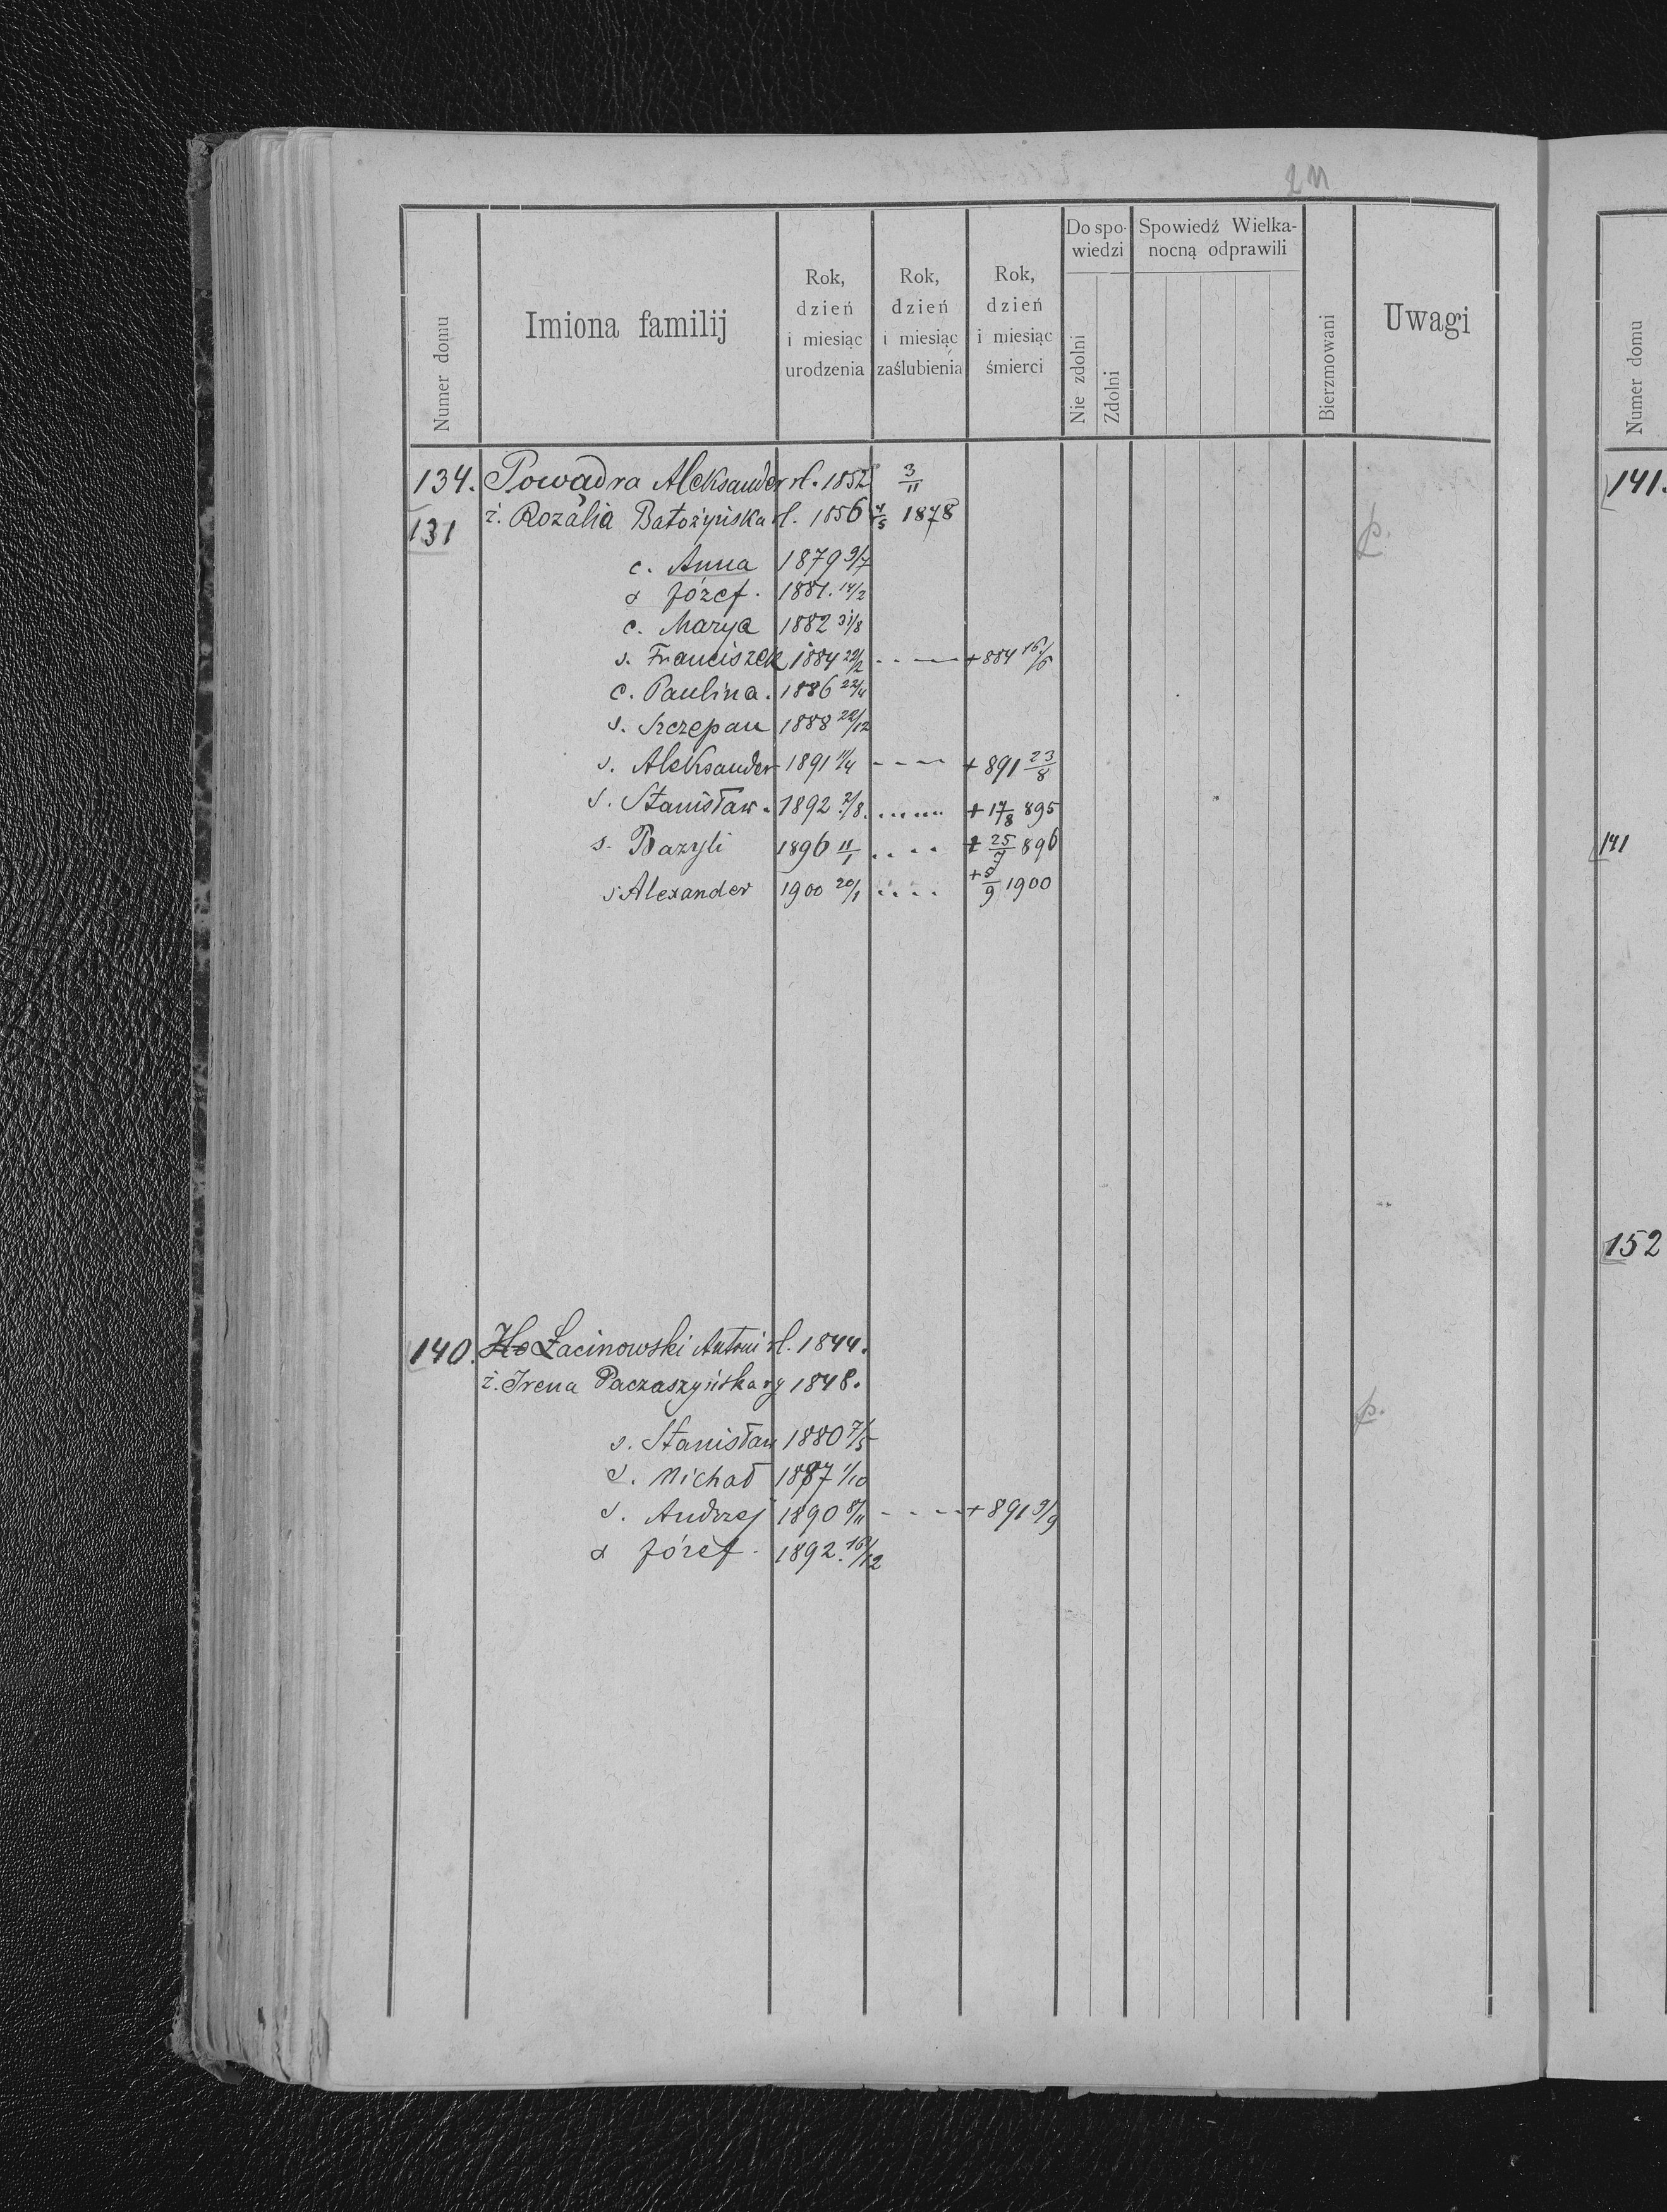 Numer domu
Imiona familij
Rok, dzień i miesiąc urodzenia
Rok, dzień i miesiąc zaślubienia
Rok, dzień i miesiąc śmierci
Do spo-wiedzi
Nie zdolni
Zdolni
Spowiedź Wielka-nocną odprawili
Bierzmowani
Uwagi
134. Powadra Aleksander rl. 1852 3/11
131 ż. Rozalia Batożyńska rl. 1856 4/5 1878 p.
c. Anna 1879 9/7
Józef. 1881. 14/2
c. Marya 1882 31/8
s. Franciszek 1884 22/2 - - — +884 16/6
c. Paulina. 1886 22/4
s. Szczepan 1888 22/12
s. Aleksander 1891 11/4 - - - - +891 23/8
s. Stanisław. 1892 2/8. ...... + 17/8 895
s. Bazyli 1896 11/1 .... + 25/7 896
s Alexander 1900 20/1 .... + 5/9 1900
140. Łacinowski Antoni rl. 1844.
ż. Irena Paczaszyńska rg 1848.
p.
s. Stanisław 1880 7/5
s. Michał 1887 1/10
s. Andrzej 1890 8/11 - - - - +891 9/9
Józef. 1892. 16/12
Numer domu
141.
141
152